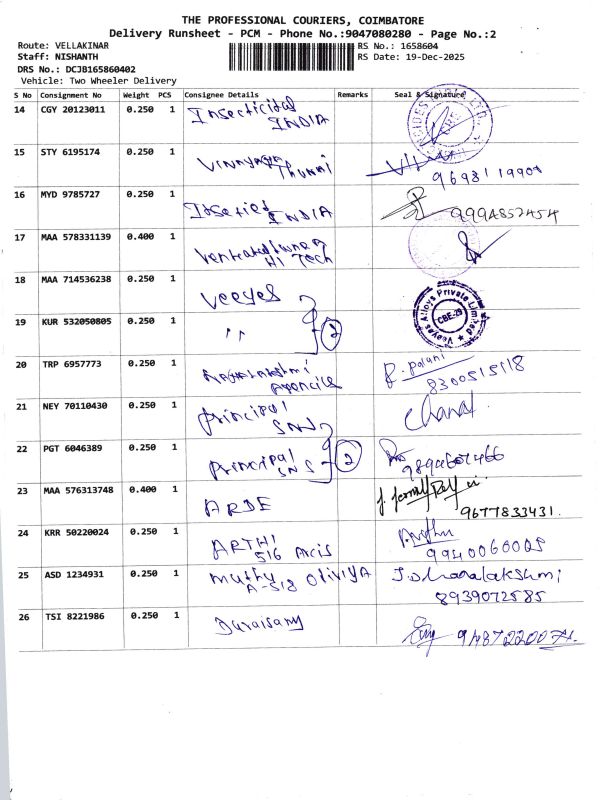 THE PROFESSIONAL COURIERS, COIMBATORE
Delivery Runsheet - PCM - Phone No.:9047080280 - Page No.:2
Route: VELLAKINAR
RS No.: 1658604
Staff: NISHANTH
RS Date: 19-Dec-2025
DRS No.: DCJB165860402
Vehicle: Two Wheeler Delivery
S No Consignment No Weight PCS Consignee Details Remarks Seal & Signature
14 CGY 20123011 0.250 1 Insecticidal
INDIA
15 STY 6195174 0.250 1
16 MYD 9785727 0.250 1 INDIA 9994852454
17 MAA 578331139 0.400 1
Hi Tech
18 MAA 714536238 0.250 1 Veeyes
Veeyas Alloys Private Limited
CBE-29
19 KUR 532050805 0.250 1 " 2
20 TRP 6957773 0.250 1 R. palani
8300515118
21 NEY 70110430 0.250 1 principal
SNS
22 PGT 6046389 0.250 1 principal
SNS 2
23 MAA 576313748 0.400 1 ARDE
9677833431.
24 KRR 50220024 0.250 1 ARTHI
516 Arcis
9940060009
25 ASD 1234931 0.250 1 muthu Oliviya
A-513
8939072585
26 TSI 8221986 0.250 1 Duraisamy